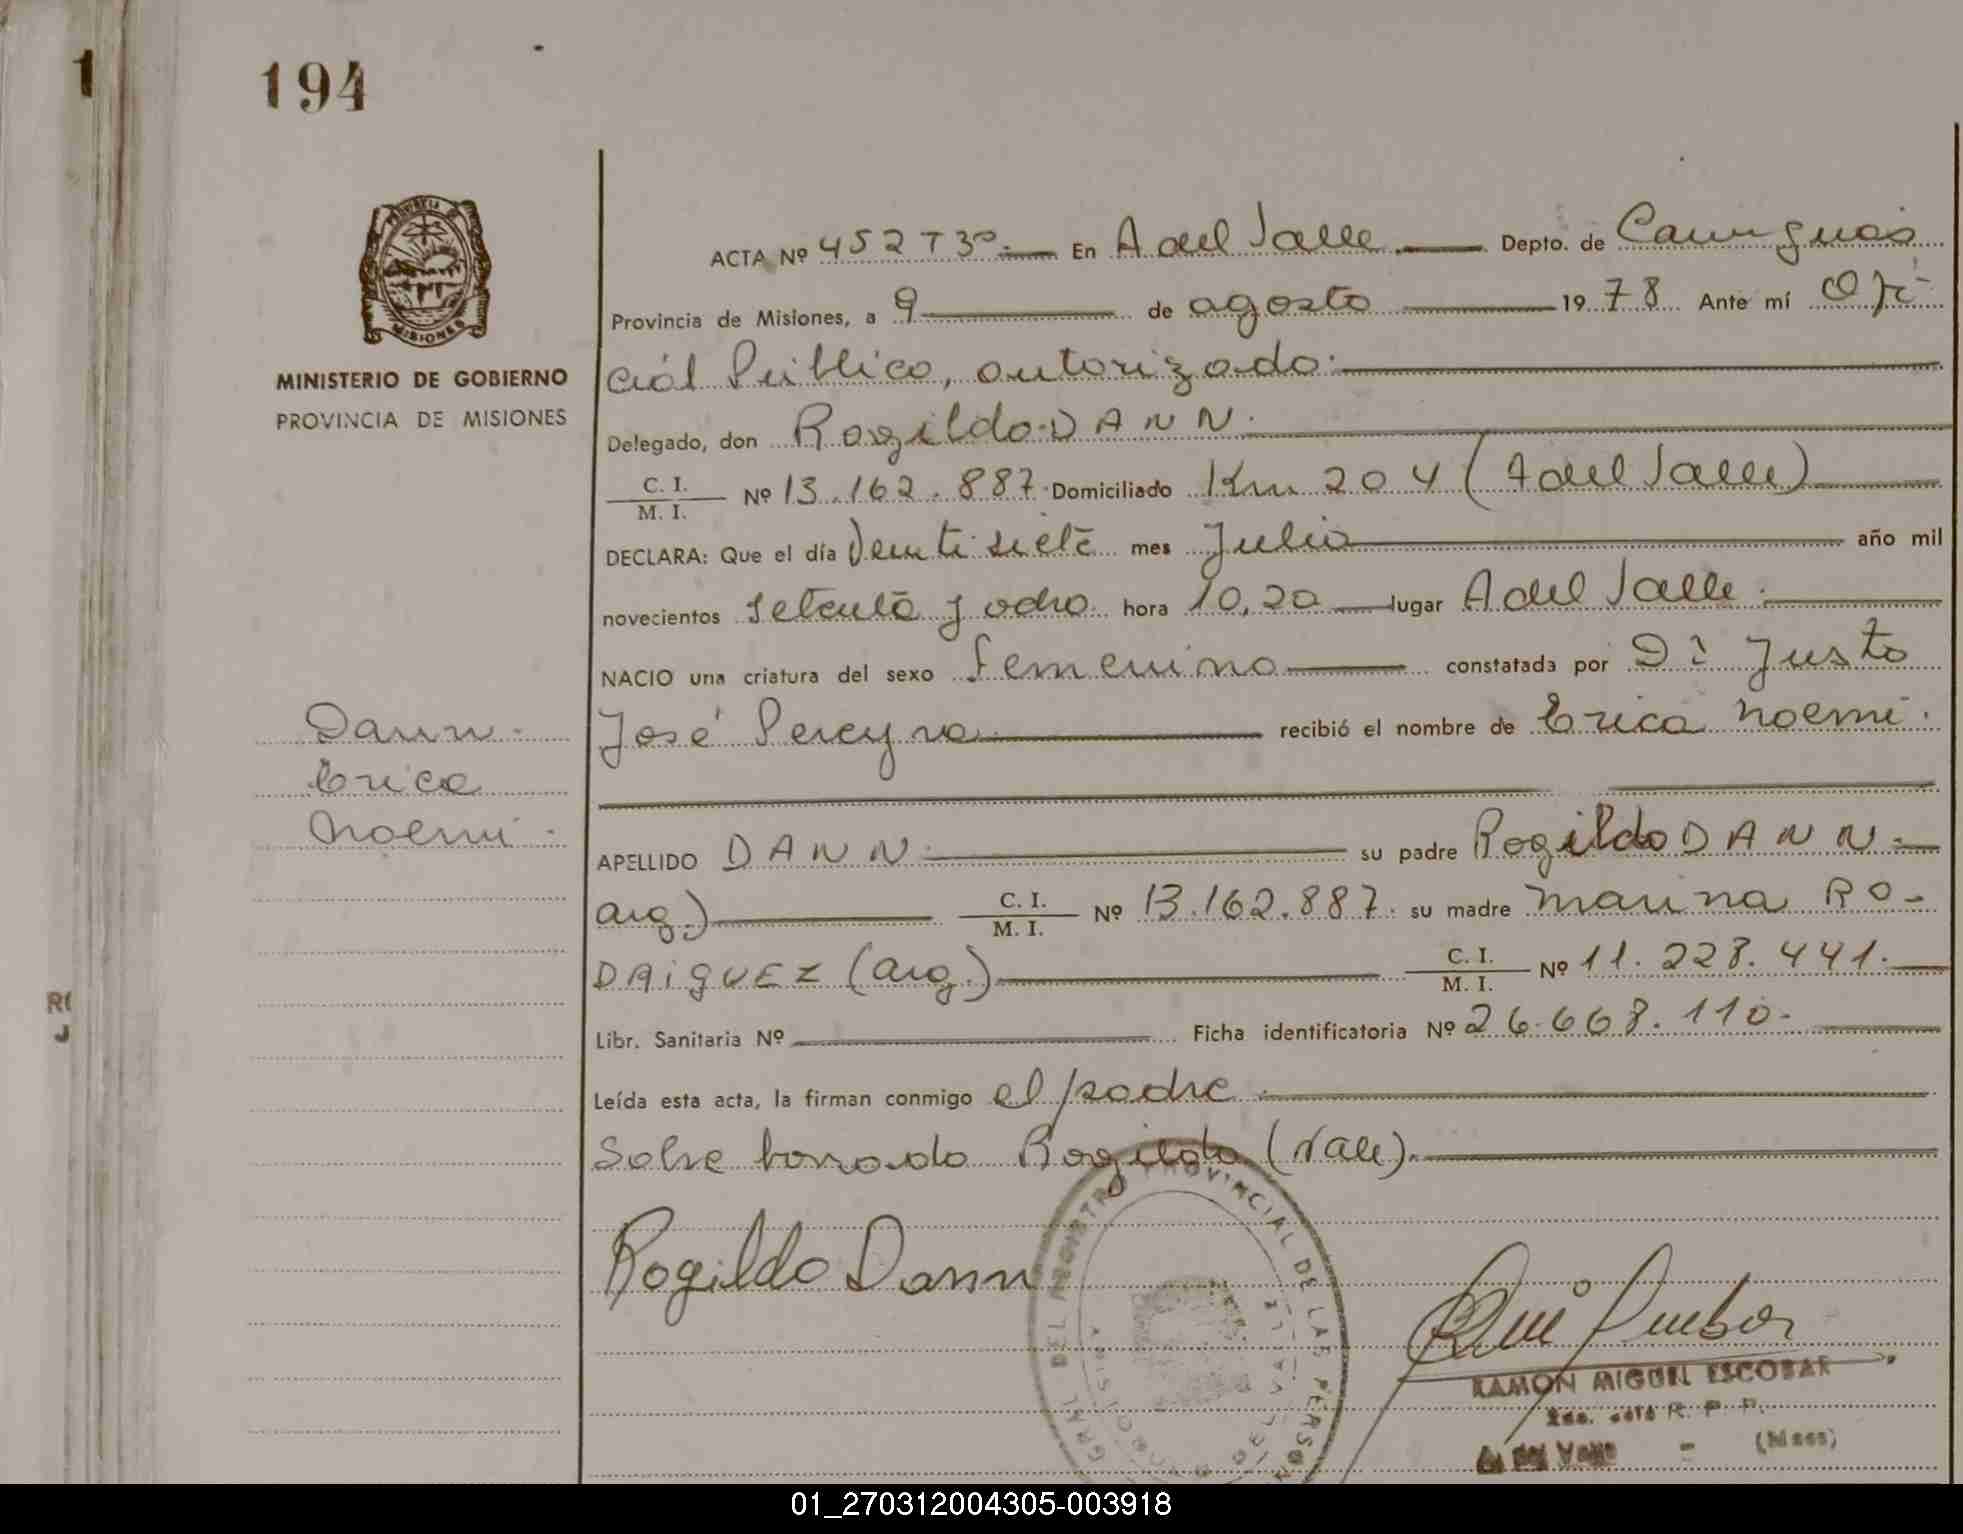 1
194
PROVINCIA DE
MISIONES
MINISTERIO DE GOBIERNO
PROVINCIA DE MISIONES
ACTA Nº 452 T 3º En A del Valle Depto. de Cainguás
Provincia de Misiones, a 9 de agosto 1978 Ante mí Ofi-
cial Público, autorizado.
Delegado, don Rogildo DANN.
C. I.
M. I. Nº 13.162.887. Domiciliado Km 204 (A del Valle)
DECLARA: Que el día Veintisiete mes Julio año mil
novecientos setenta y ocho hora 10,20 lugar A del Valle.
NACIO una criatura del sexo Femenino constatada por Dr Justo
José Pereyra recibió el nombre de Erica Noemi.
Dann.
Erica
Noemi.
APELLIDO DANN. su padre Rogildo DANN.
Arg.) C. I.
M. I. Nº 13.162.887. su madre Marina RO-
DRIGUEZ (Arg.) C. I.
M. I. Nº 11.228.441.
Libr. Sanitaria Nº Ficha identificatoria Nº 26.668.110.
Leída esta acta, la firman conmigo el padre.
Sobre borrado Rogildo (Vale).
Rogildo Dann
GRAL DEL REGISTRO PROVINCIAL DE LAS PERSON
RAMON MIGUEL ESCOBAR
R. P. P.
A. del Valle - (Mnes)
01_270312004305-003918